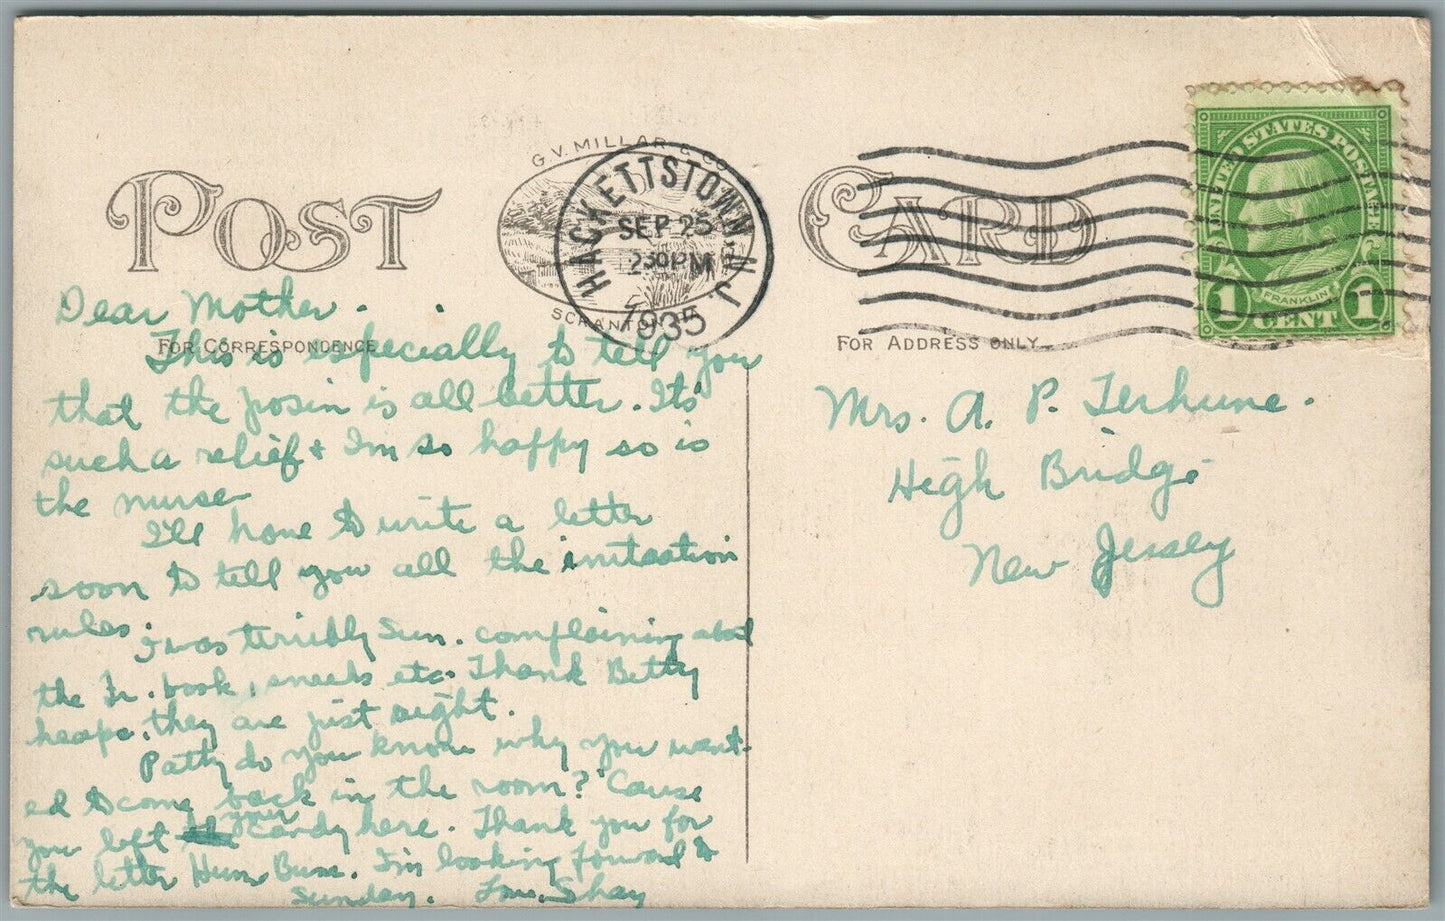 POST CARD
G. V. MILLAR & CO.
SCRANTON
HACKETTSTOWN, N.J.
SEP 25
2 30 PM
1935
UNITED STATES POSTAGE
FRANKLIN
1 CENT 1
FOR CORRESPONDENCE
FOR ADDRESS ONLY
Dear Mother.
This is especially to tell you
that the posin is all better. Its
such a relief & I'm so happy so is
the nurse
I'll have to write a letter
soon to tell you all the initaation
rules.
I was terribly Sun. complaining about
the Fr. book, sneeks etc. Thank Betty
heaps. they are just right.
Patty do you know why you want-
ed to come back in the room? 'Cause
you left your candy here. Thank you for
the letter Hum Bum. I'm looking forward to
Sunday. Love. Shay
Mrs. A. P. Terhune.
High Bridge
New Jersey